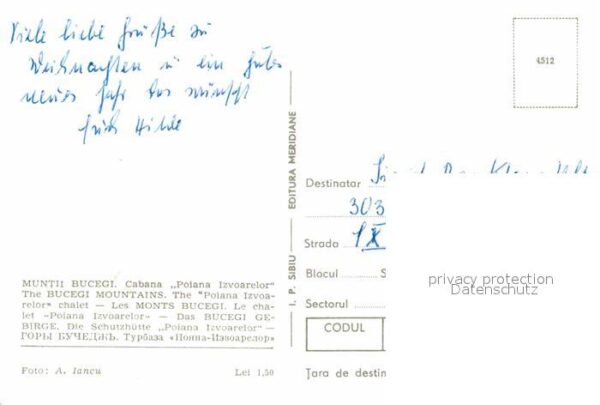 Viele liebe Grüße zu
Weihnachten u ein gutes
neues Jahr das wünscht
Hilde
4512
I. P. SIBIU — EDITURA MERIDIANE
Destinatar
303
Strada
Blocul S
Sectorul
CODUL
Țara de destin
privacy protection
Datenschutz
MUNȚII BUCEGI. Cabana „Poiana Izvoarelor"
The BUCEGI MOUNTAINS. The "Poiana Izvoa-
relor" chalet — Les MONTS BUCEGI. Le cha-
let «Poiana Izvoarelor» — Das BUCEGI GE-
BIRGE. Die Schutzhütte „Poiana Izvorelor" —
ГОРЫ БУЧЕДЖЬ. Турбаза «Пояна-Извоарелор»
Foto: A. Iancu
Lei 1,50